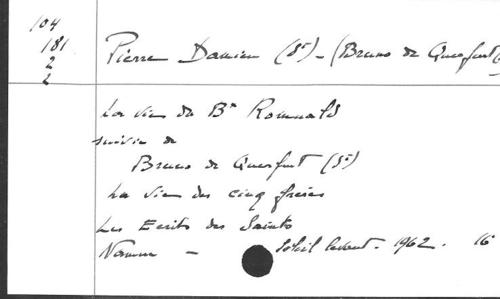 104
181
2
2
Pierre Damien (St) - (Bruno de Querfurt (
La vie du Bx Romuald
suivie de
Bruno de Querfurt (St)
La vie des cinq frères
Les Ecrits des Saints
Namur - Soleil levant. 1962. 16°